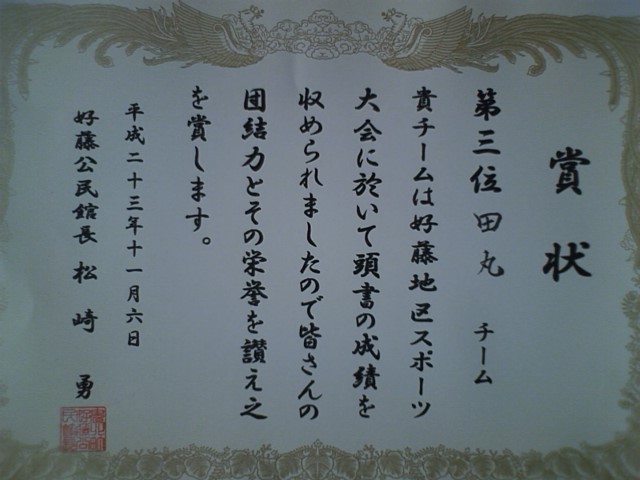 賞状
第三位 田丸 チーム
貴チームは好藤地区スポーツ
大会に於いて頭書の成績を
収められましたので皆さんの
団結力とその栄誉を讃え之
を賞します。
平成二十三年十一月六日
好藤公民館長 松崎 勇